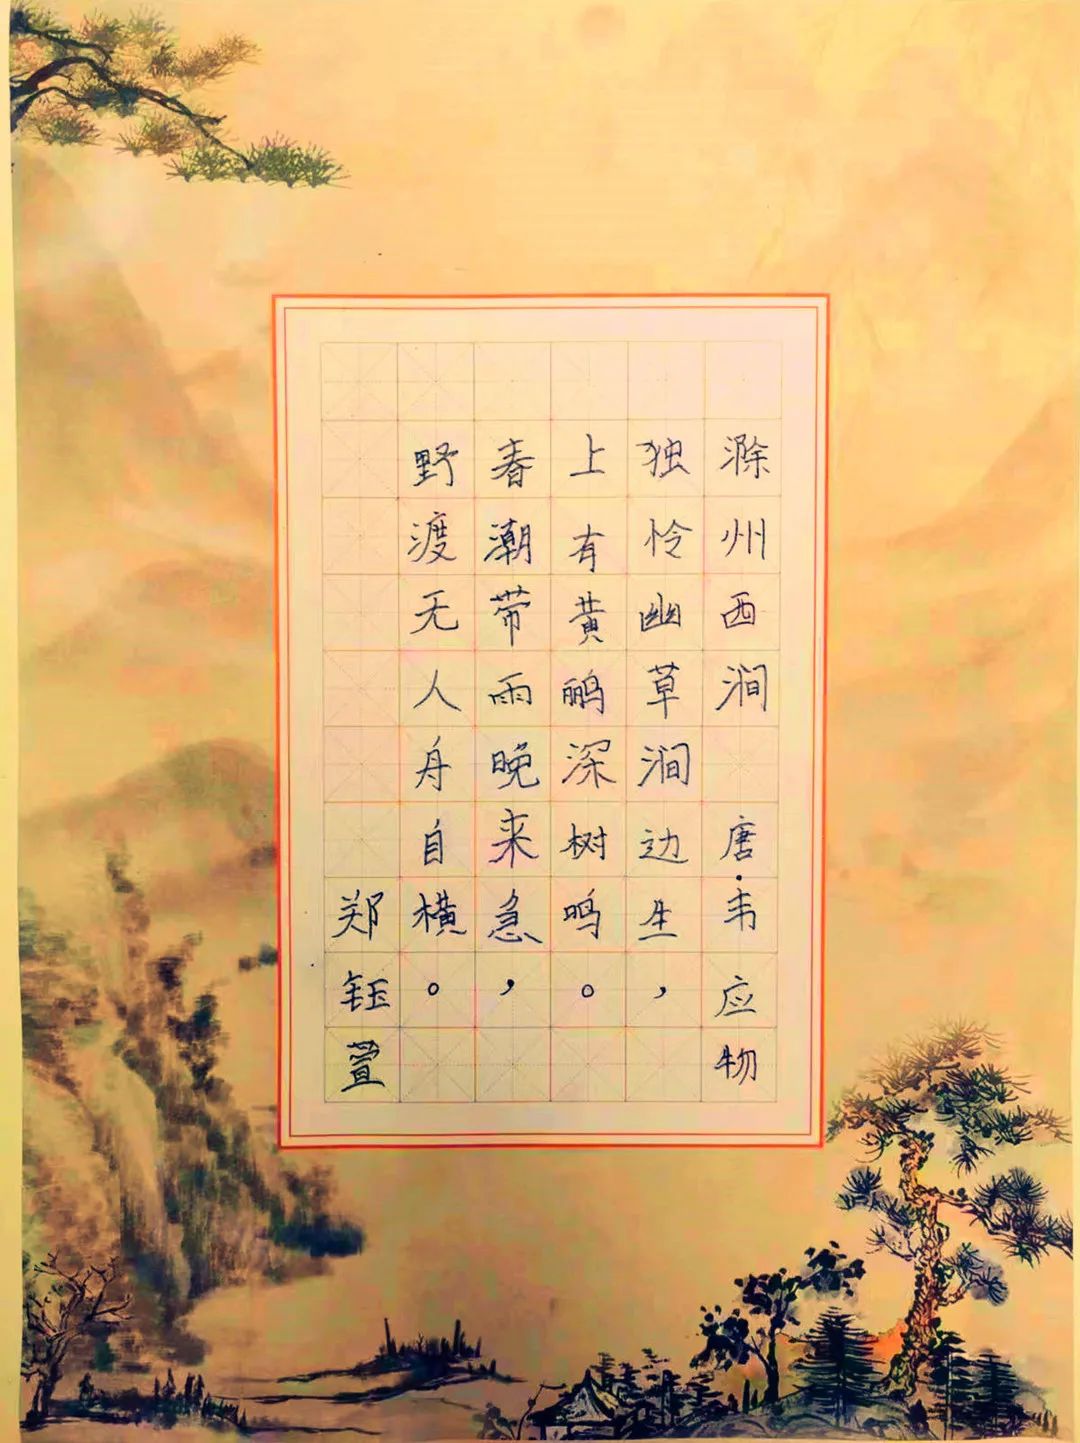 滁州西涧 唐·韦应物
独怜幽草涧边生，
上有黄鹂深树鸣。
春潮带雨晚来急，
野渡无人舟自横。
郑钰萱